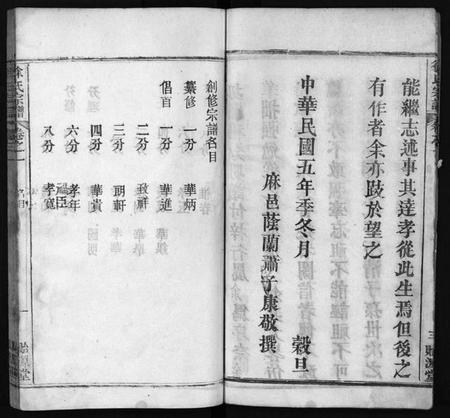 徐氏宗譜
能繼志述事其達孝從此生焉但後之
有作者余亦跂於望之
中華民國五年季冬月 榖旦
麻邑蔭蘭蕭子康敬撰
三 貽源堂
徐氏宗譜 卷之一
創修宗譜名目
纂修 一分 華炳
倡首 一分 華進
二分 致祥
三分 明軒
四分 華貴
六分 孝年
八分 孝寬
名目
一